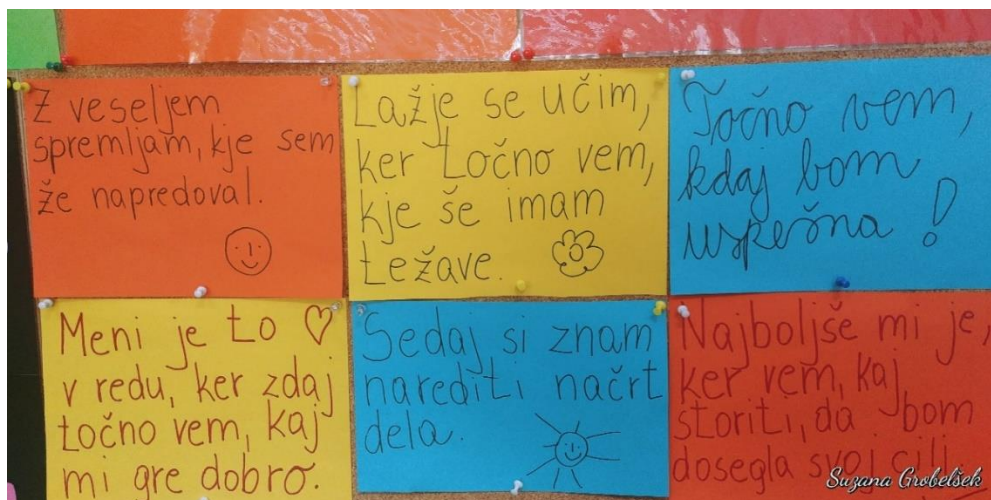 Z veseljem
spremljam, kje sem
že napredoval.
Lažje se učim,
ker točno vem,
kje še imam
težave.
Točno vem,
kdaj bom
uspešna!
Meni je to
v redu, ker zdaj
točno vem, kaj
mi gre dobro.
Sedaj si znam
narediti načrt
dela.
Najboljše mi je,
ker vem, kaj
storiti, da bom
dosegla svoj cilj.
Suzana Grobelšek